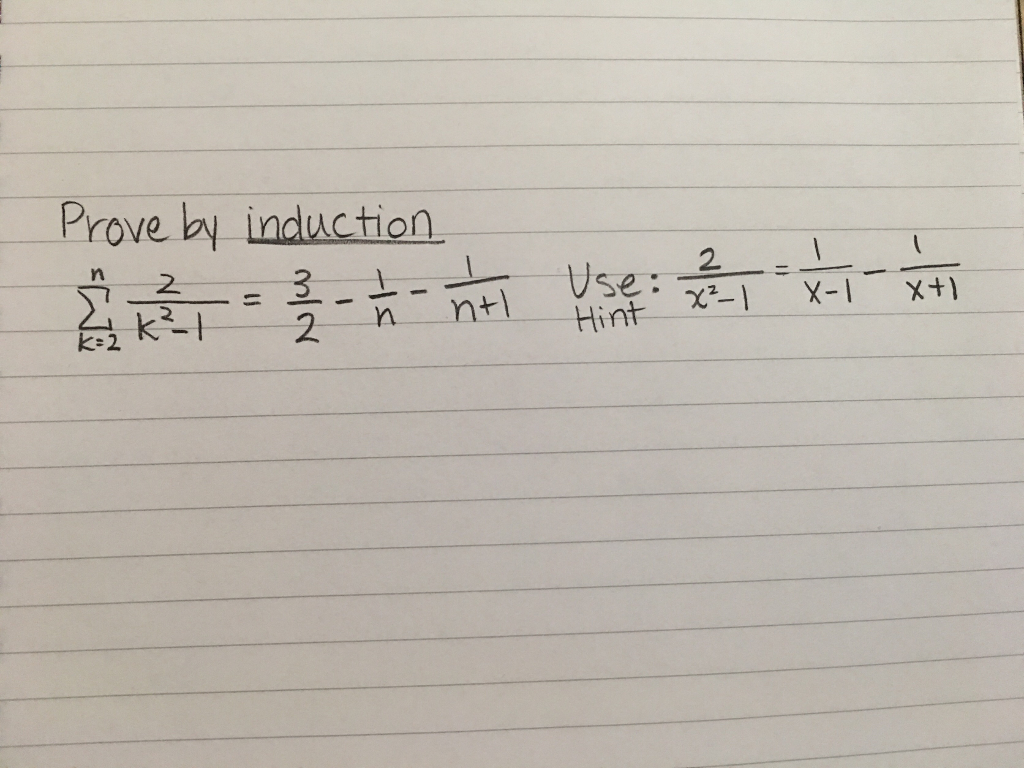 Prove by induction
\sum_{k=2}^{n} \frac{2}{k^2-1} = \frac{3}{2} - \frac{1}{n} - \frac{1}{n+1} Use: \frac{2}{x^2-1} = \frac{1}{x-1} - \frac{1}{x+1}
Hint